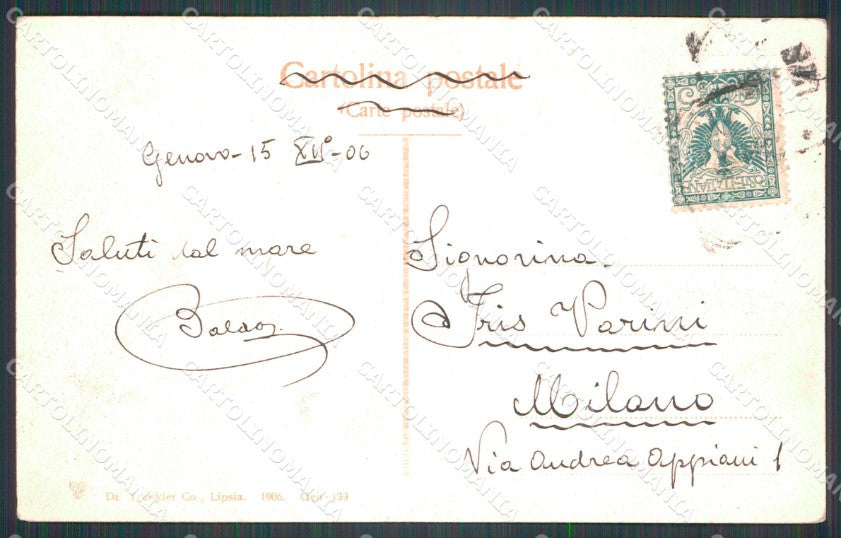 Cartolina postale
(Carte postale)
Genova-15 XII°-06
Saluti dal mare
Signorina
Iris Parini
Milano
Via Andrea Appiani 1
Dr. Trenkler Co., Lipsia. 1906. Gen 139
CARTOLINOMANIA